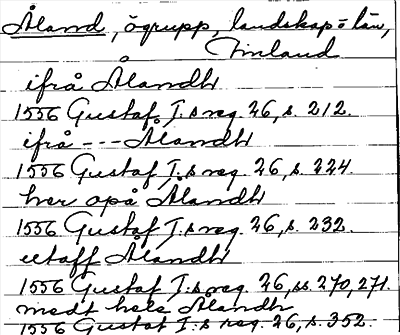 Åland, ögrupp, landskap = län,
Finland
ifrå Ålandh
1556 Gustaf I:s reg. 26, s. 212.
ifrå --- Ålandh
1556 Gustaf I:s reg. 26, s. 224.
her opå Ålandh
1556 Gustaf I:s reg. 26, s. 232.
utaff Ålandh
1556 Gustaf I:s reg. 26, ss. 270, 271.
medt hele Ålandh
1556 Gustaf I:s reg. 26, s. 352.